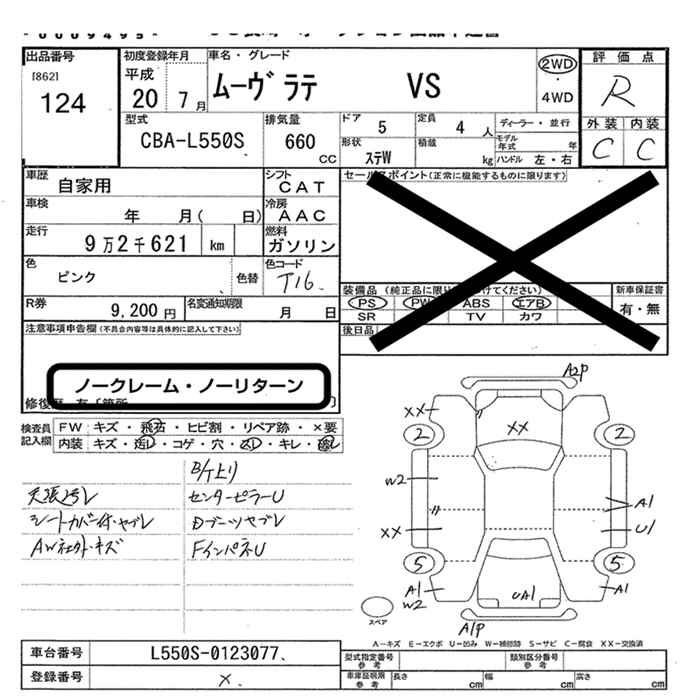 出品番号
[862]
124
初度登録年月
平成
20 7月
車名・グレード
ムーヴ ラテ VS
2WD
・
4WD
評価点
R
外装 内装
C C
型式
CBA-L550S
排気量
660
CC
ドア 5
定員 4 人
ディーラー・並行
モデル年式 年
形状 ステW
積載 kg
ハンドル 左・右
車歴 自家用
シフト CAT
車検 年 月( 日)
冷房 AAC
走行 9万2千621 km
燃料 ガソリン
色 ピンク 色替
色コード T16
R券 9,200円
名変通知期限 月 日
セールスポイント(正常に機能するものに限ります)
装備品 (純正品に限り けてください)
PS PW ABS エアB
SR TV カワ
新車保証書
有・無
後日品
注意事項申告欄(不具合内容等は具体的に記入して下さい)
ノークレーム・ノーリターン
検査員記入欄
FW キズ・飛石・ヒビ割・リペア跡・×要
内装 キズ・汚レ・コゲ・穴・スレ・キレ・
天張汚レ
シートカバー付・ヤブレ
センターピラーU
Dブーツヤブレ
FインパネU
A2P
XX
XX
2
2
W2
XX
A1
U1
5
5
A1
W2
UA1
A1
A1P
スペア
A―キズ E―エクボ U―凹み W―補修跡 S―サビ C―腐食 XX―交換済
車台番号 L550S-0123077
登録番号 ×
型式指定番号
参考
類別区分番号
参考
車庫証明用
参考
長さ cm
幅 cm
高さ cm